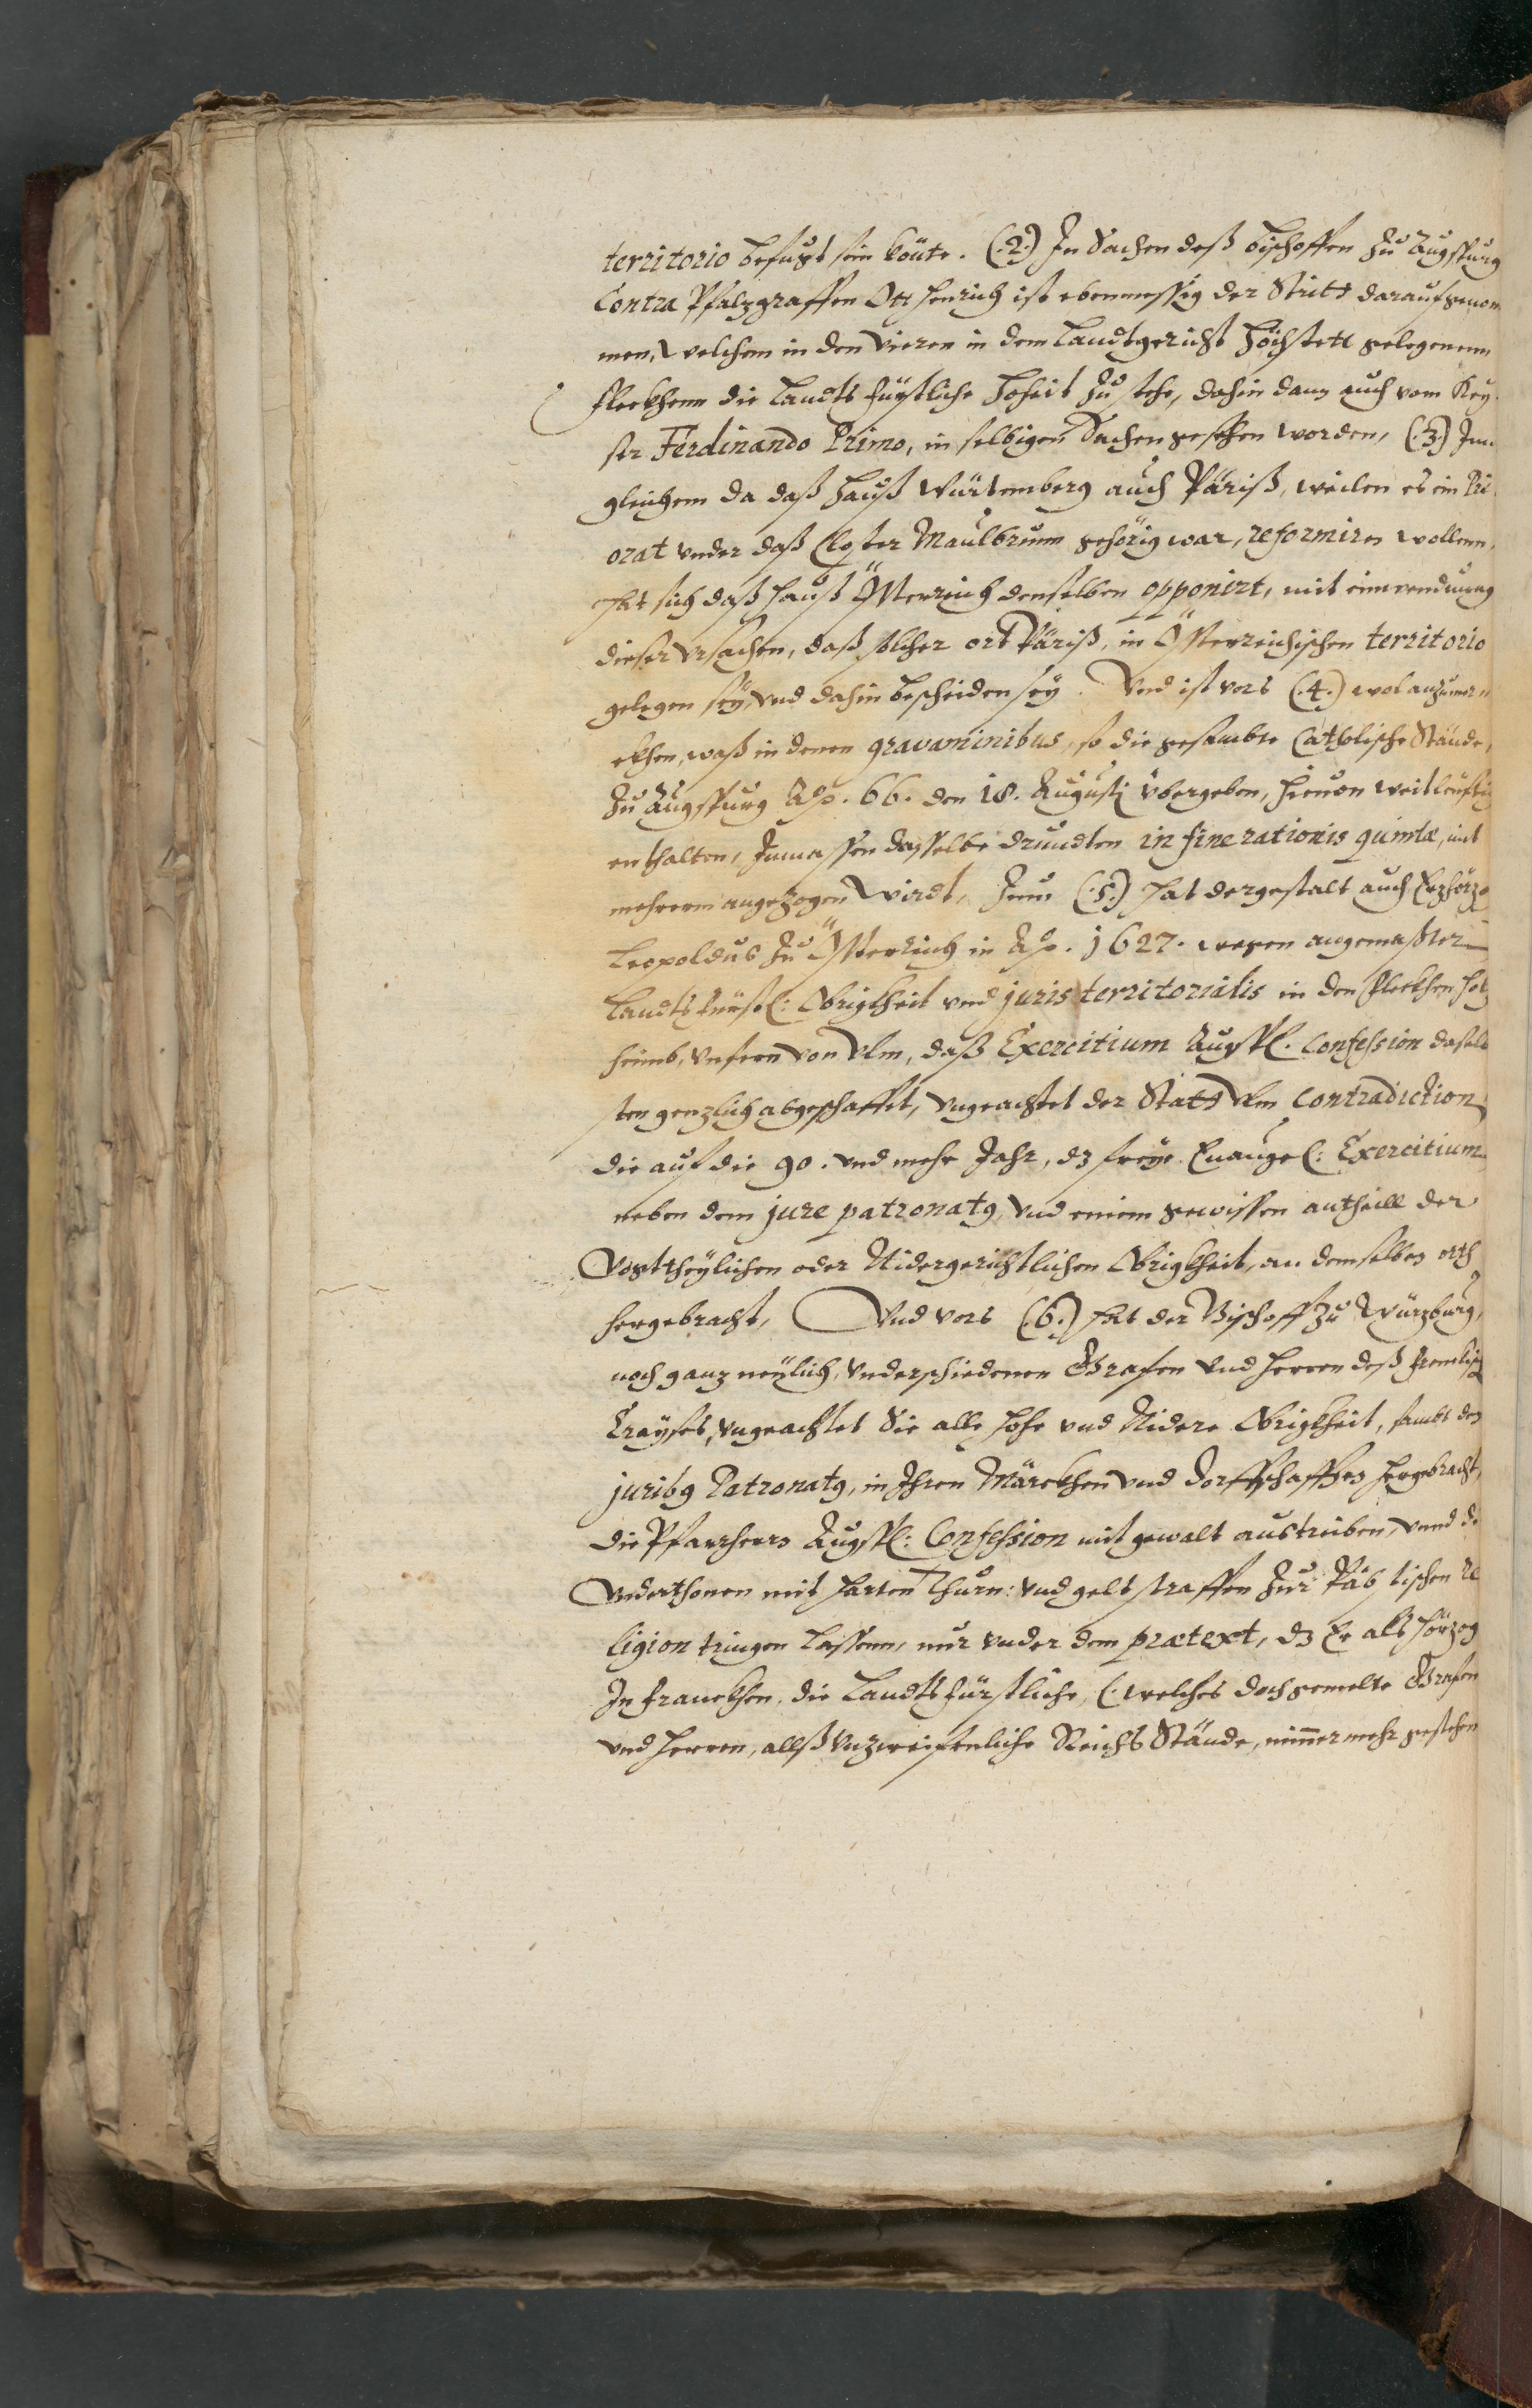 territorio befugt sein könte. (.2.) In Sachen deß Bischoffen zu Augspurg
Contra Pfalzgraffen Ott Henrich ist ebenmessig der Stritt darauf genom
men, welchem in den vieren in dem Landtgericht Höchstett gelegenenn
Fleckhenn die Landtsfürstliche Hoheit zu stehe, dahin dann auch vom Key
ser Ferdinando Primo, in selbigen Sachen gesehen worden, (.3.) Inn
gleichem da daß Hauß Würtemberg auch Päriß, weilen es ein Pri
orat under daß Closter Maulbrunn gehörig war, reformiren wollenn,
hat sich daß Hauß Österreich denselben opponirt, mit einwendung
dieser Ursachen, daß solcher ort Päriß, in Österreichischen territorio
gelegen sey, und dahin bescheiden sey. Und ist vors (.4.) wol anzumer
ckhen, waß in denen gravaminibus, so die gesambte Catholische Stände,
zu Augspurg Ao. 66. den 18. Augusti übergeben, hieuon weitleuffig
enthalten, Inmassen dasselbe drundten in fine rationis quintæ, mit
mehrerm angezogen wirdt, Zum (.5.) hat dergestalt auch Erzhörzog
Leopoldus zu Österreich in Ao. 1627. wegen angemaßter
Landtsfürstl: Obrigkheit und juris territorialis in den Fleckhen Holz
heimb, unfern von Ulm, daß Exercitium Augspl. Confession daselb
sten genzlich abgeschafft, ungeachtet der Statt Ulm Contradiction
die auf die 90. und mehr Jahr, dz freye Euangel: Exercitium
neben dem jure patronatus, und einem gewissen antheill der
Vogttheylichen oder Nidergerichtlichen Obrigkheit, an demselben orth
hergebracht, Und vors (.6.) hat der Bischoff zu Würzburg,
noch ganz neylich, underschiedenen Grafen und Herren deß Frenkisch
Crayses, ungeachtet Sie alle hohe und Nidere Obrigkheit, sambt den
juribus Patronatus, in Ihren Märckhen und Dorffschafften hergebracht,
die Pfarrherrn Augspl: Confession mit gewalt austriben, unnd de
Underthonen mit harten Thurn: und geltstraffen zur Päbstischen Re
ligion tringen lassenn, nur under dem prætext, dz Er als Hörzog
In Franckhen, die Landtsfürstliche, (.welches doch gemelte Grafen
und Herren, allß unzweifenliche Reichs Stände, nimmermehr gestehen